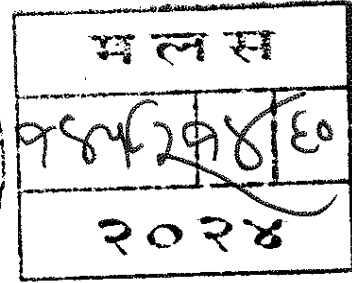 म ल स
१४५२ १४ ६०
२०२४